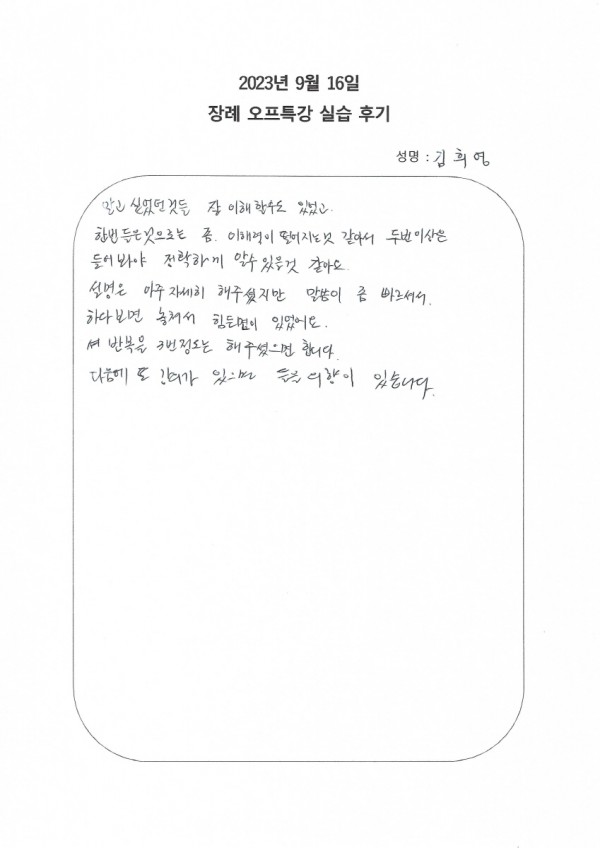 2023년 9월 16일
장례 오프특강 실습 후기
성명 : 김희영
알고 싶었던것들 잘 이해할수도 있었고.
한번 들은것으로는 좀. 이해력이 떨어지는것 같아서 두번이상은
들어봐야 정확하게 알수있을것 같아요.
설명은 아주 자세히 해주셨지만 말씀이 좀 빠르셔서.
하다보면 놓쳐서 힘든면이 있었어요.
반복을 3번정도는 해주셨으면 합니다.
다음에 또 강의가 있으면 들을 의향이 있습니다.